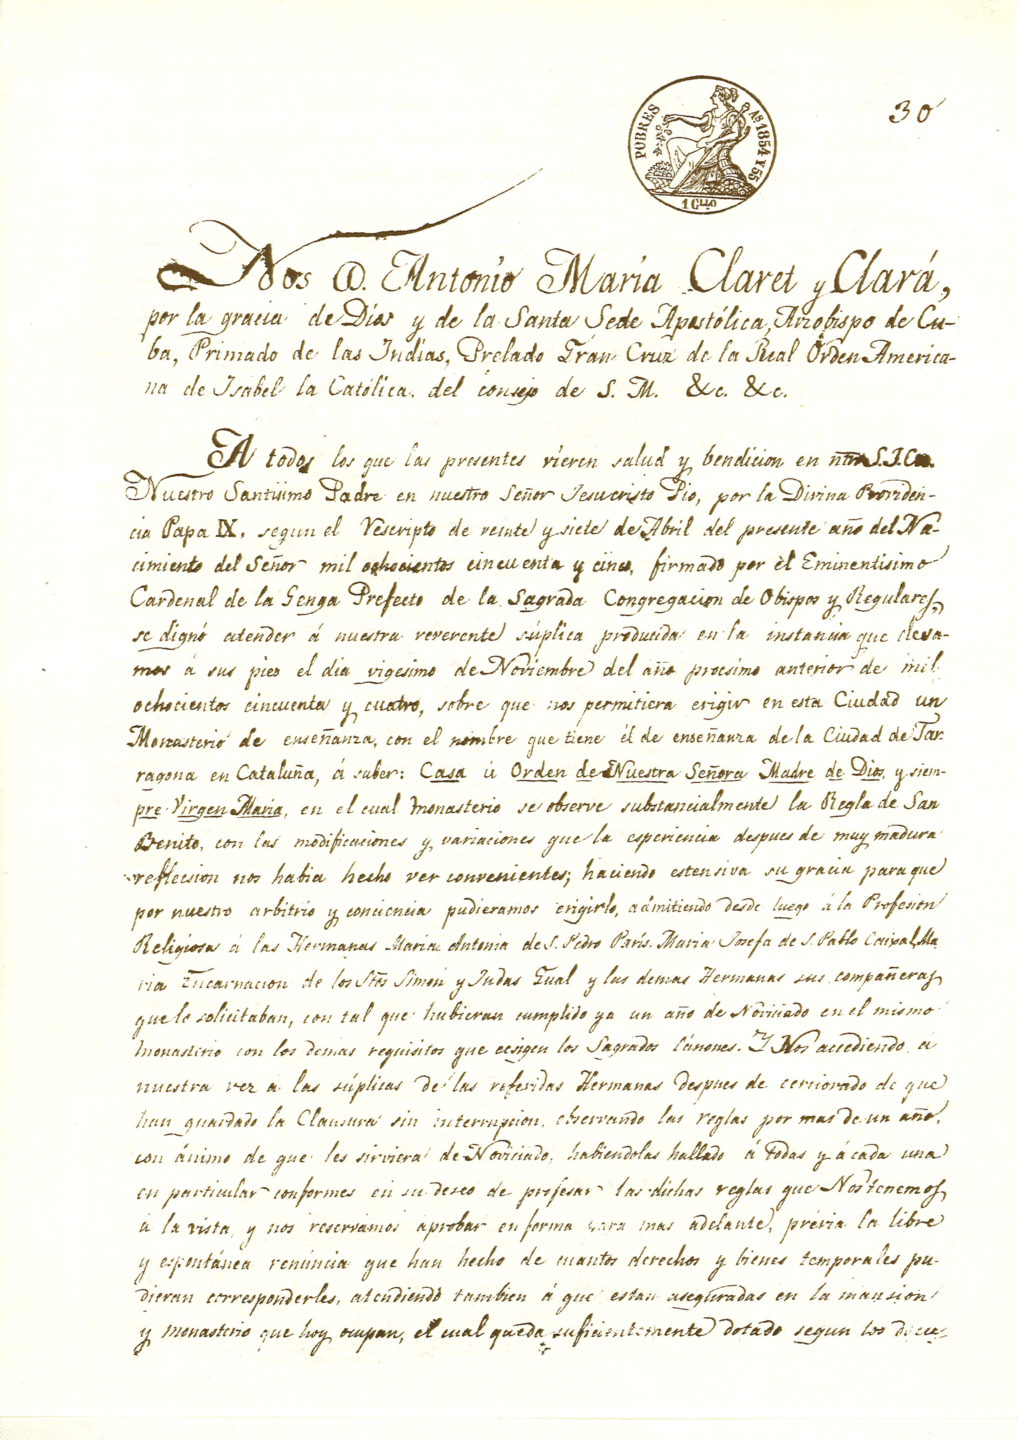 30
POBRES
AS 1854 Y 55
Nos D. Antonio Maria Claret y Clará,
por la gracia de Dios y de la Santa Sede Apostólica, Arzobispo de Cu-
ba, Primado de las Indias, Prelado Gran Cruz de la Real Órden America-
na de Isabel la Católica. del consejo de S. M. &c. &c.
A todos los que las presentes vieren salud y bendicion en S. J. C.
Nuestro Santisimo Padre en nuestro Señor Jesucristo Pio, por la Divina Providen-
cia Papa IX. segun el Rescripto de veinte y siete de Abril del presente año del Na-
cimiento del Señor mil ochocientos cincuenta y cinco, firmado por el Eminentisimo
Cardenal de la Genga Prefecto de la Sagrada Congregacion de Obispos y Regulares,
se dignó atender á nuestra reverente súplica producida en la instancia que eleva-
mos á sus pies el dia vigesimo de Noviembre del año procsimo anterior de mil
ochocientos cincuenta y cuatro, sobre que nos permitiera erigir en esta Ciudad un
Monasterio de enseñanza, con el nombre que tiene él de enseñanza de la Ciudad de Tar-
ragona en Cataluña, á saber: Casa ú Orden de Nuestra Señora Madre de Dios, y siem-
pre Virgen Maria, en el cual monasterio se observe substancialmente la Regla de San
Benito, con las modificaciones y variaciones que la esperiencia despues de muy madura
reflecsion nos habia hecho ver convenientes; haciendo estensiva su gracia para que
por nuestro arbitrio y conciencia pudieramos erigirlo, admitiendo desde luego á la Profesion
Religiosa á las Hermanas Maria Antonia de S. Pedro París, Maria Josefa de S. Pablo Caixal, Ma
ria Encarnacion de los Stos Simon y Judas Gual y las demas Hermanas sus compañeras,
que lo solicitaban, con tal que hubieran cumplido ya un año de Noviciado en el mismo
monasterio con los demas requisitos que ecsigen los Sagrados Cánones. Y Nos accediendo a
nuestra vez á las súplicas de las referidas Hermanas despues de cerciorado de que
han guardado la Clausura sin interrupcion, observando las reglas por mas de un año,
con ánimo de que les sirviera de Noviciado, habiendolas hallado á todas y á cada una
en particular conformes en su deseo de profesar las dichas reglas que Nos tenemos
á la vista, y nos reservamos aprobar en forma para mas adelante, prévia la libre
y espontánea renúncia que han hecho de cuantos derechos y bienes temporales pu-
dieran corresponderles, atendiendo tambien á que estan aseguradas en la mansion
y monasterio que hoy ocupan, el cual queda suficientemente dotado segun los